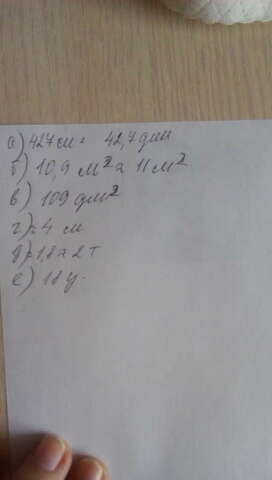 а) 427см = 42,7дм
б) 10,9 м² ≈ 11м²
в) 109 дм²
г) ≈ 4 м
д) ≈ 1,8 ≈ 2 т
е) 18 ц